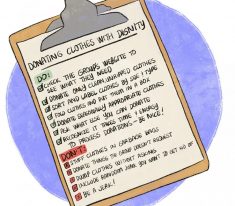 DONATING CLOTHES WITH DIGNITY
DO:
CHECK THE GROUP'S WEBSITE TO
SEE WHAT THEY NEED
DONATE ONLY CLEAN, UNHARMED CLOTHES
SORT AND LABEL CLOTHES BY SIZE & TYPE
FOLD CLOTHES AND PUT THEM IN A BOX
DONATE SEASONALLY APPROPRIATE CLOTHES
ASK WHAT ELSE YOU CAN DONATE
RECOGNIZE IT TAKES TIME & ENERGY
TO PROCESS DONATIONS - BE NICE!
DON'T:
STUFF CLOTHES IN GARBAGE BAGS
DONATE THINGS THE GROUP DOESN'T REQUEST
DUMP CLOTHES WITHOUT ASKING
INCLUDE RANDOM JUNK YOU WANT TO GET RID OF
BE A JERK!